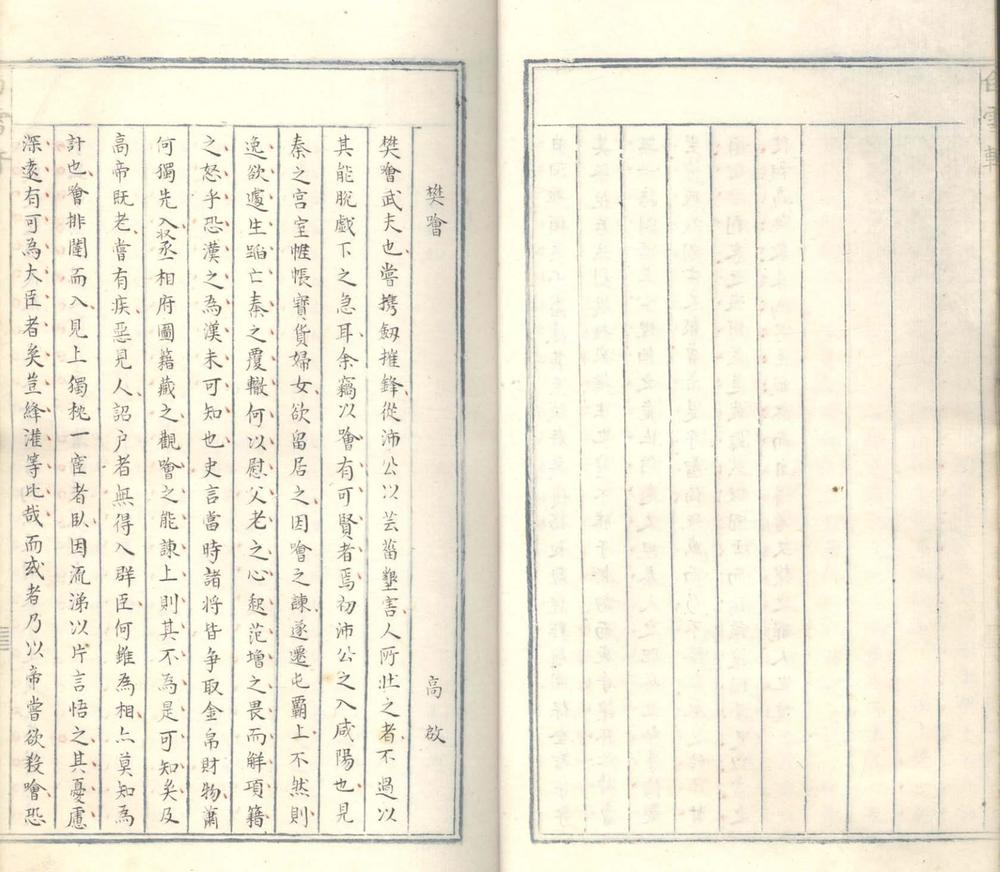 樊噲 高啟
樊噲武夫也嘗携劔摧鋒從沛公以芸菑墾害人所壯之者不過以
其能脫戯下之急耳余竊以噲有可賢者焉初沛公之入咸陽也見
秦之宮室帷帳寶貨婦女欲留居之因噲之諫遂還屯霸上不然則
逸欲遽生蹈亡秦之覆轍何以慰父老之心起范增之畏而觧項籍
之怒乎恐漢之為漢未可知也史言當時諸將皆争取金帛財物蕭
何獨先入収丞相府圖籍藏之觀噲之能諫上則其不為是可知矣及
高帝既老嘗有疾惡見人詔户者無得入群臣何雖為相亦莫知為
計也噲排闥而入見上獨枕一宦者臥因流涕以片言悟之其憂慮
深逺有可為大臣者矣豈絳灌等比哉而或者乃以帝嘗欲殺噲恐